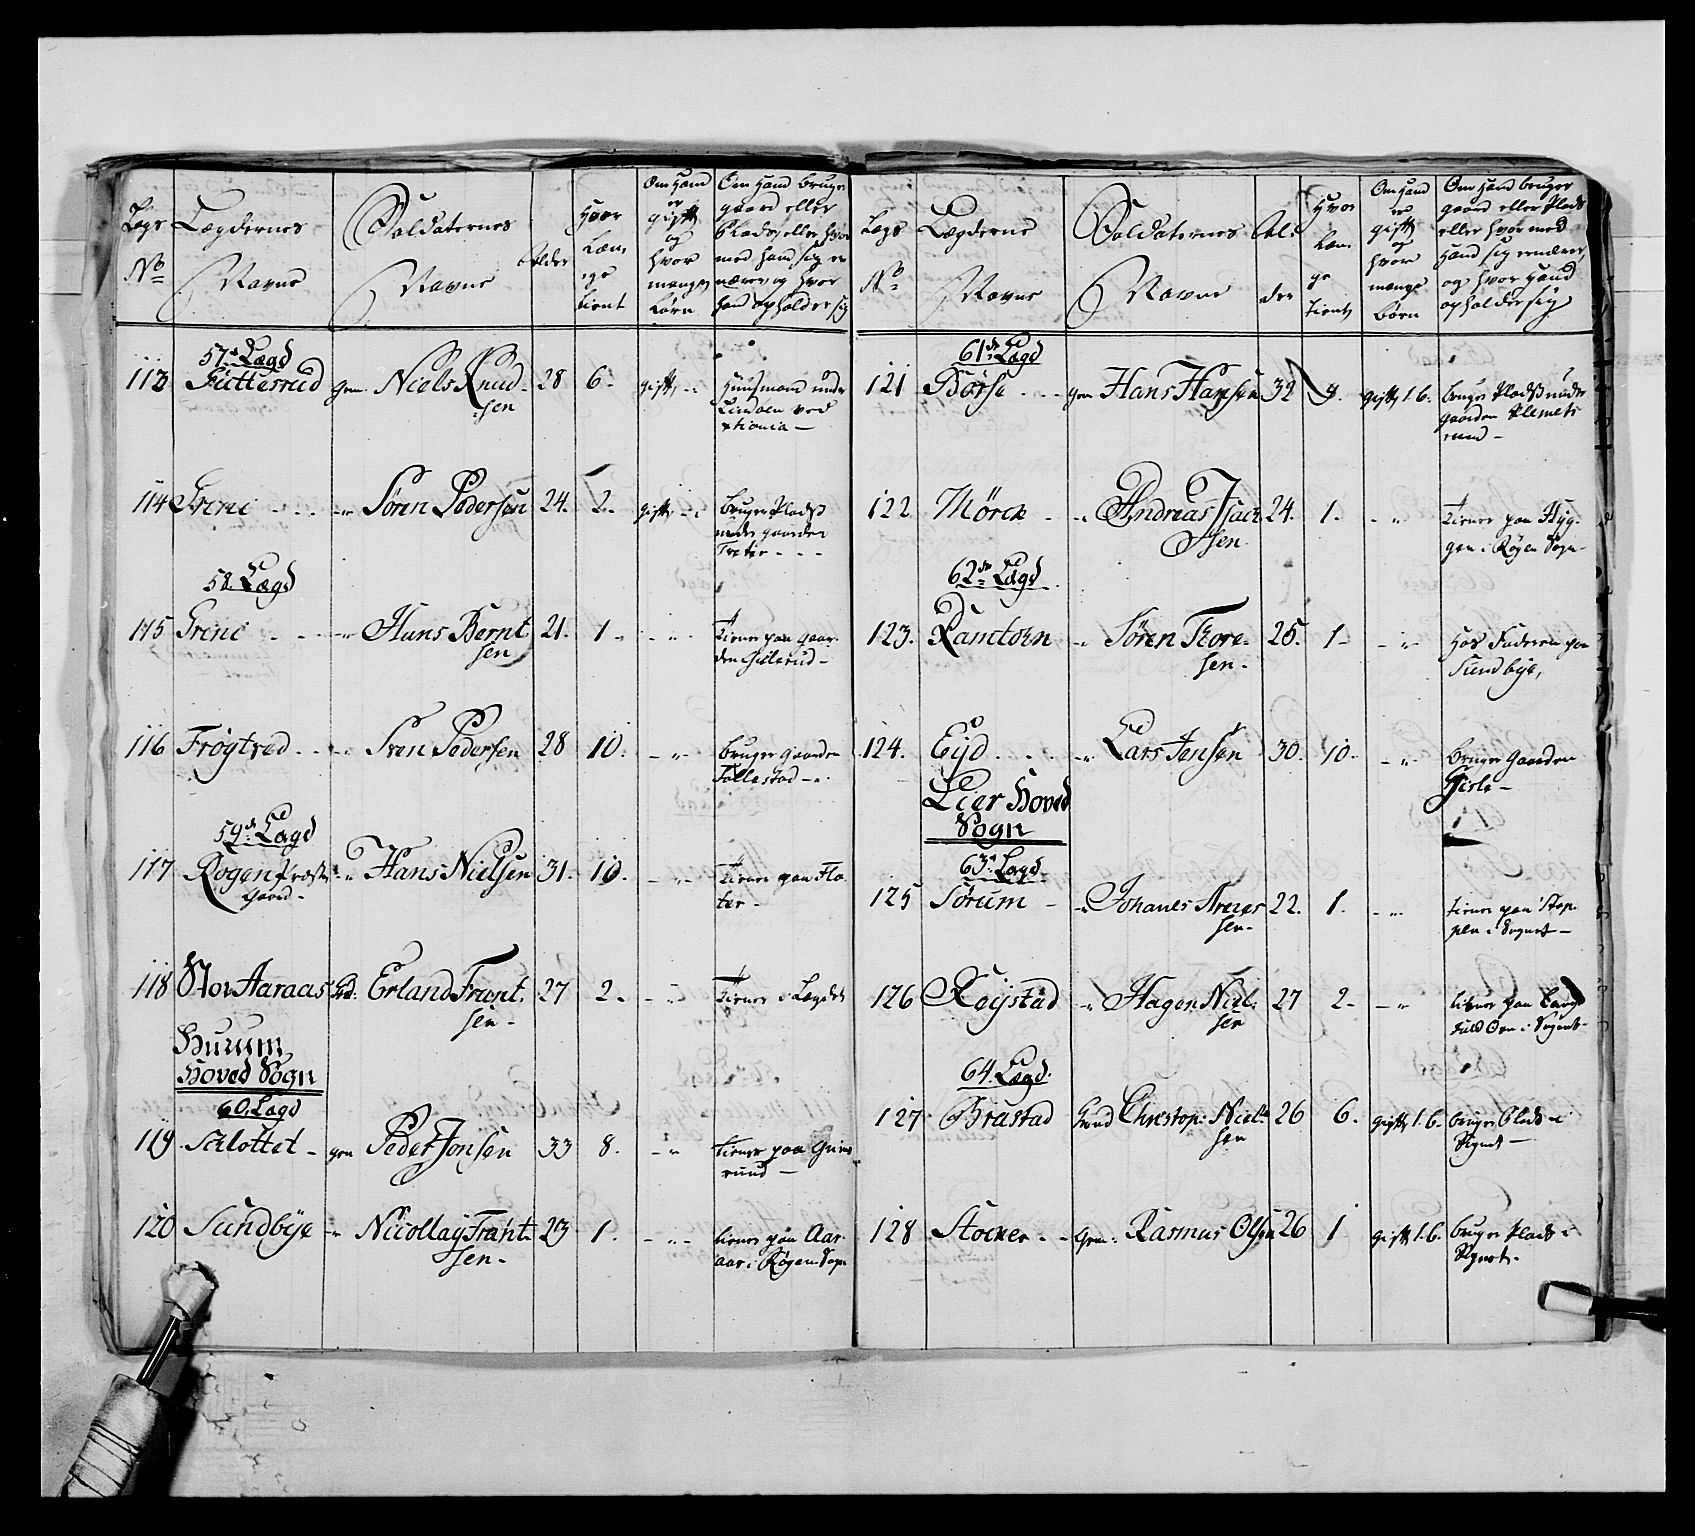 Lægs No
Lægdernes Navne
Soldaternes Navne
Alder
Hvor Længe tient
Om Hand er gift og hvor mange Børn
Om Hand bruger gaard eller Plads, eller hvor med hand sig er nærer og hvor hand opholder sig
57de Lægd
113 Futterud gem. Niels Knud-
sen
28 6. gift - "
Huusmand under
Lindøen ved
xtiania -
114 Greni - - - " Søren Pedersen 24. 2. gift - "
bruger Plads
under gaarden
Treter - - -
58. Lægd
115 Greni - - - " Hans Bernt
sen
21. 1 - - "
tiener paa gaar-
den Gislerud -
116 Frøgtved - - " Sven Pedersen 28 10. - "
bruger gaarden
Follestad - "
59de Lægd
117 Røgen Præste
Gaard -
" Hans Nielsen 31. 10. - "
tiener paa Flo-
ter -
118 Stor Aaraas Erland Frant-
sen -
27 2. - "
tiener i Lægdet
Hurum
Hoved Sogn
60. Lægd
119 Schlottet - gem Peder Jonsen 33 8. - "
tiener paa Grims
ruud -
120 Sundbye " Nicollay Frant-
sen -
23 1. - "
tiener paa Aar-
aas i Røgen Sogn
Lægs No
Lægderne Navne
Soldaternes Navne
Alder
Hvor Længe tient
Om Hand er gift og hvor mange Børn
Om Hand bruger gaard eller Plads eller hvor med Hand sig ernærer, og hvor Hand opholder sig
61de Lægd
121 Børse - - - gem Hans Hansen 32 9. gift 1. b.
bruger Plads under
gaarden Klemets
ruud -
122 Mørch - " Andreas Isach
sen.
24. 1. - "
tiener paa Hyg-
gen i Røgen Sogn -
62de Lægd
123. Ramton " Søren Tore-
sen -
25. 1 - - "
hos Faderen paa
Sundbye,
124. Eyd - - - " Lars Jensen 30. 10. - "
bruger gaarden
Gisle -
Lier Hoved
Sogn
63de Lægd
125 Sørum - " Johanes Arnes
sen -
22. 1. - "
tiener paa Stop-
pen i Sognet -
126 Røystad " Hagen Niel-
sen
27 2 - - "
tiener paa
i Sognet -
64. Lægd.
127 Bråstad Christop: Niel-
sen
26 6. gift 1. b.
bruger Plads i
Sognet -
128 Stocker - - gem: Rasmus Olsen 26 1 gift 1. b.
bruger Plads i
Sognet -